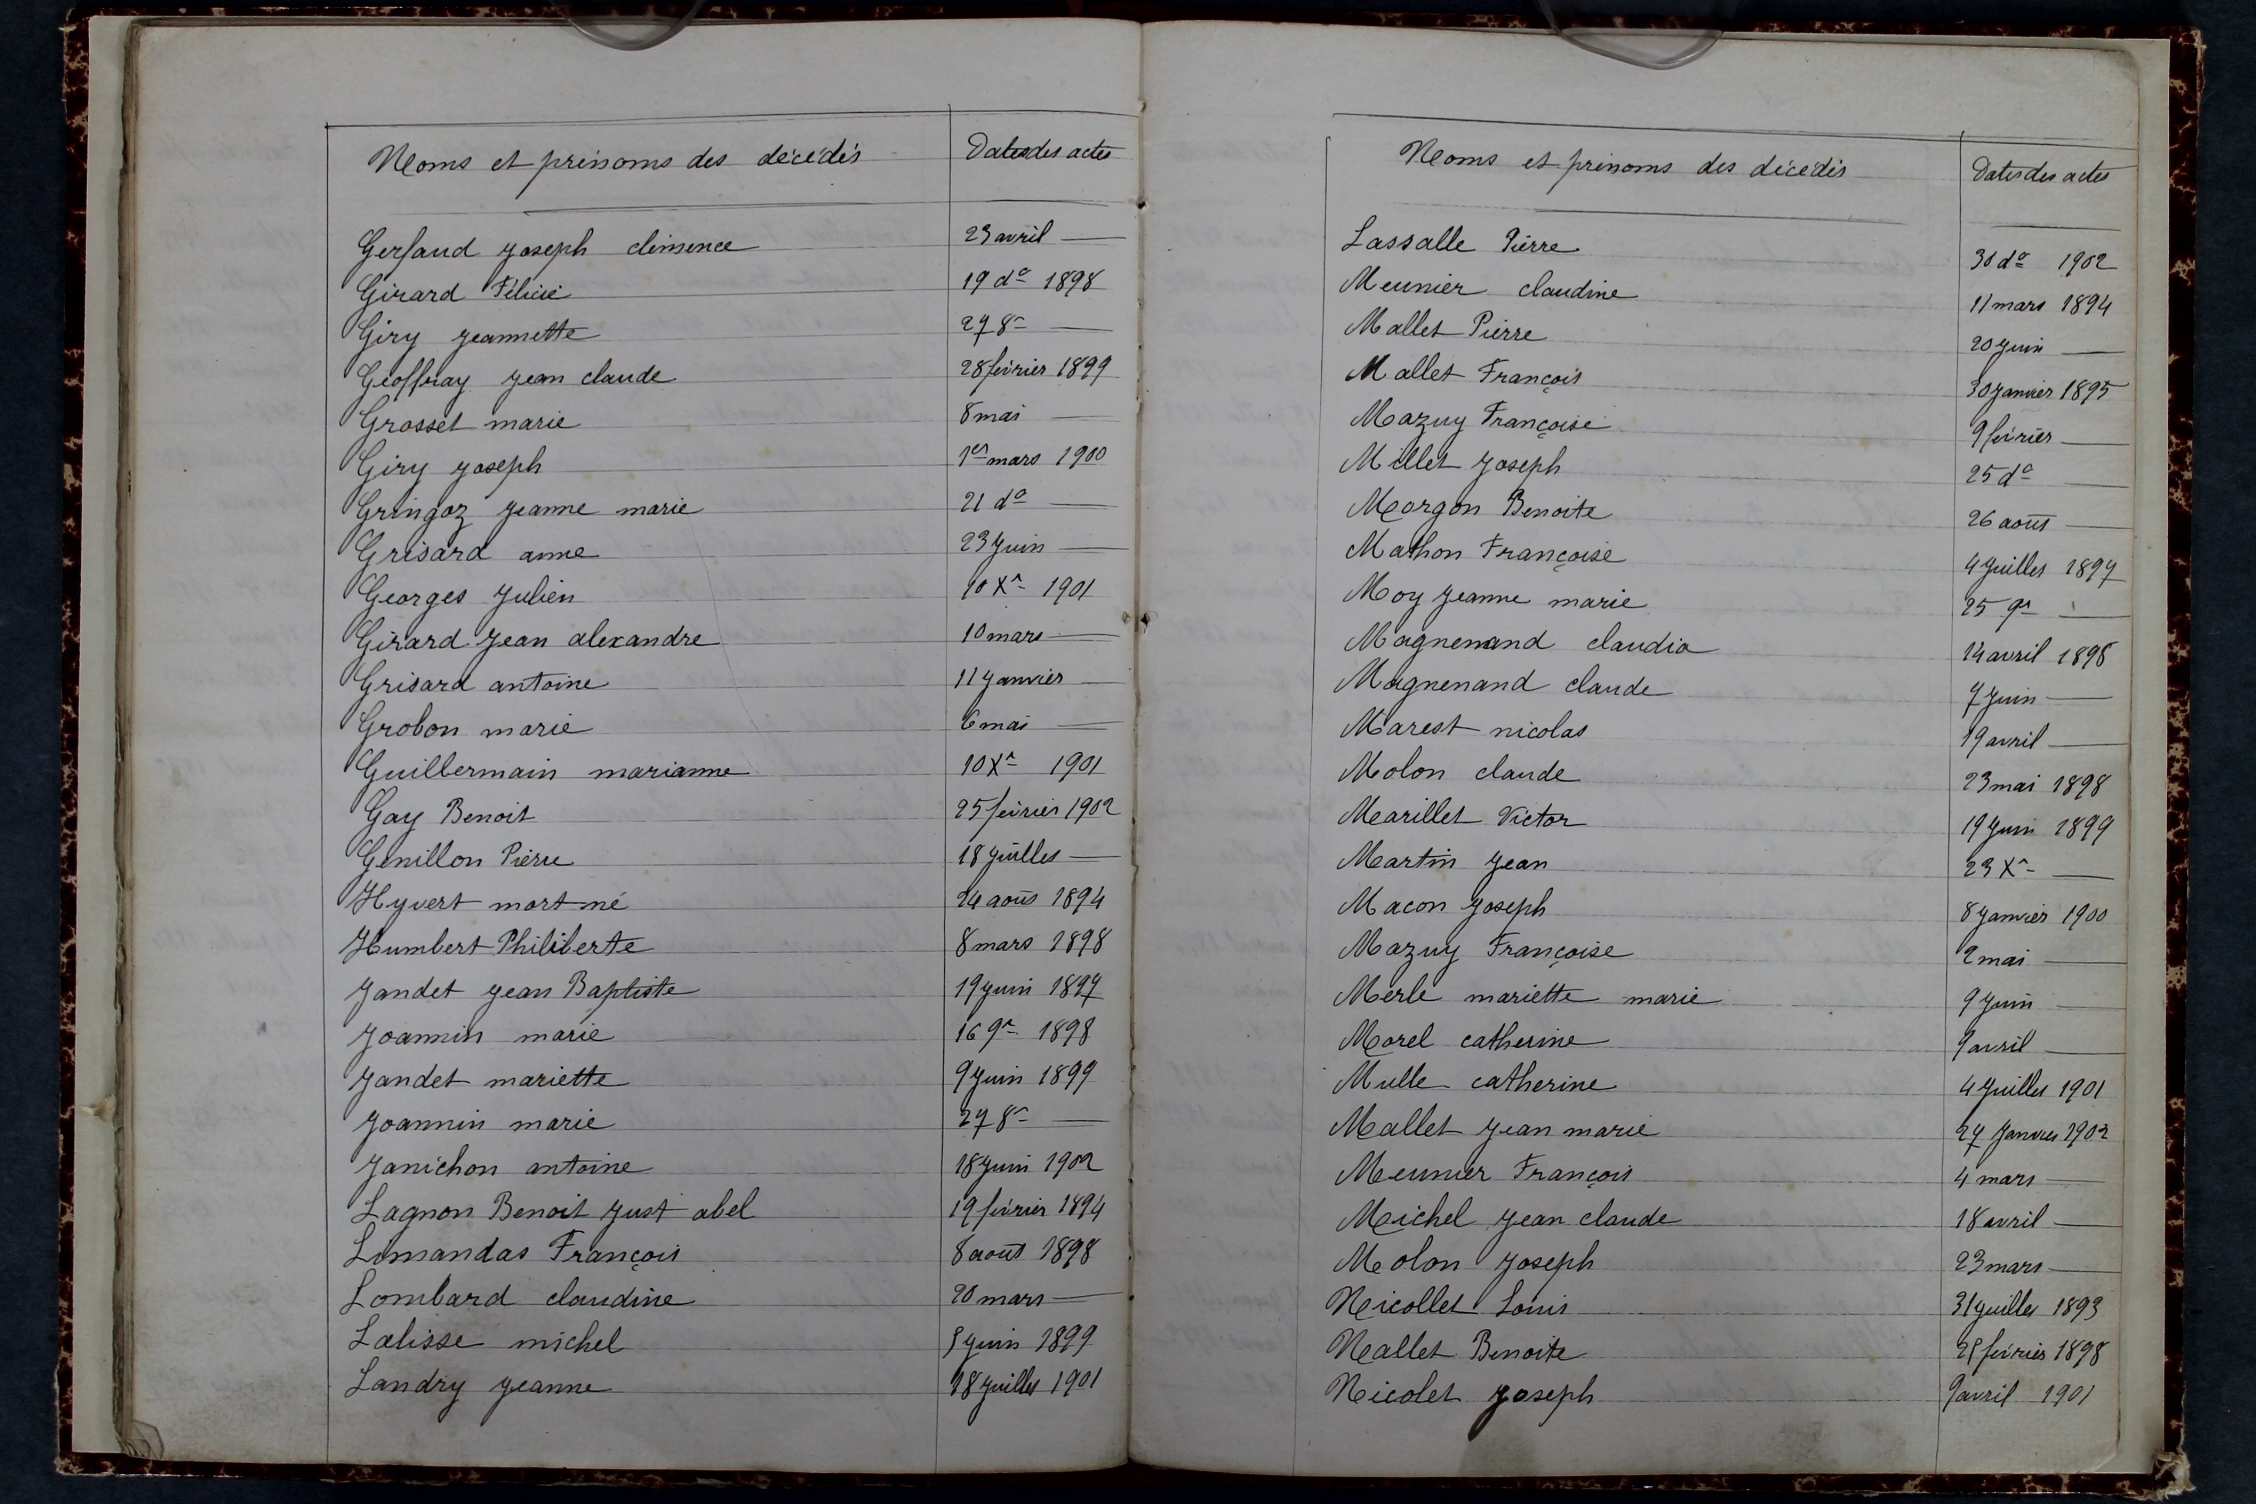 Noms et prénoms des décédés Dates des actes
Gerfaud Joseph clémence 23 avril —
Girard Félicie 19 do 1898
Giry Jeannette 27 8r —
Geoffray Jean claude 28 février 1899
Grosset marie 8 mai —
Giry Joseph 1er mars 1900
Gringoz Jeanne marie 21 do —
Grisard anne 23 Juin —
Georges Julien 10 Xr 1901
Girard Jean alexandre 10 mars —
Grisard antoine 11 Janvier —
Grobon marie 6 mai —
Guillermain marianne 10 Xr 1901
Gay Benoit 25 février 1902
Genillon Pierre 18 Juillet —
Hyvert mort né 24 août 1894
Humbert Philiberte 8 mars 1898
Jandet Jean Baptiste 19 Juin 1897
Joannin marie 16 9r 1898
Jandet mariette 9 Juin 1899
Joannin marie 27 8r —
Janichon antoine 18 Juin 1902
Lagnon Benoit Just abel 19 février 1894
Limandas François 8 août 1898
Lombard claudine 20 mars —
Lalisse michel 5 Juin 1899
Landry Jeanne 18 Juillet 1901
Noms et prénoms des décédés Dates des actes
Lassalle Pierre 30 do 1902
Meunier claudine 11 mars 1894
Mallet Pierre 20 Juin —
Mallet François 30 Janvier 1895
Mazuy Françoise 9 février —
Millet Joseph 25 do —
Morgon Benoite 26 août —
Mathon Françoise 4 Juillet 1897
Moy Jeanne marie 25 9r —
Magnenand claudia 14 avril 1898
Magnenand claude 7 Juin —
Marest nicolas 19 avril —
Molon claude 23 mai 1898
Marillet Victor 19 Juin 1899
Martin Jean 23 Xr —
Macon Joseph 8 Janvier 1900
Mazuy Françoise 2 mai —
Merle mariette marie 9 Juin —
Morel catherine 9 avril —
Mulle catherine 4 Juillet 1901
Mallet Jean marie 27 Janvier 1902
Meunier François 4 mars —
Michel Jean claude 18 avril —
Molon Joseph 23 mars —
Nicollet Louis 31 Juillet 1893
Nallet Benoite 25 février 1898
Nicolet Joseph 9 avril 1901